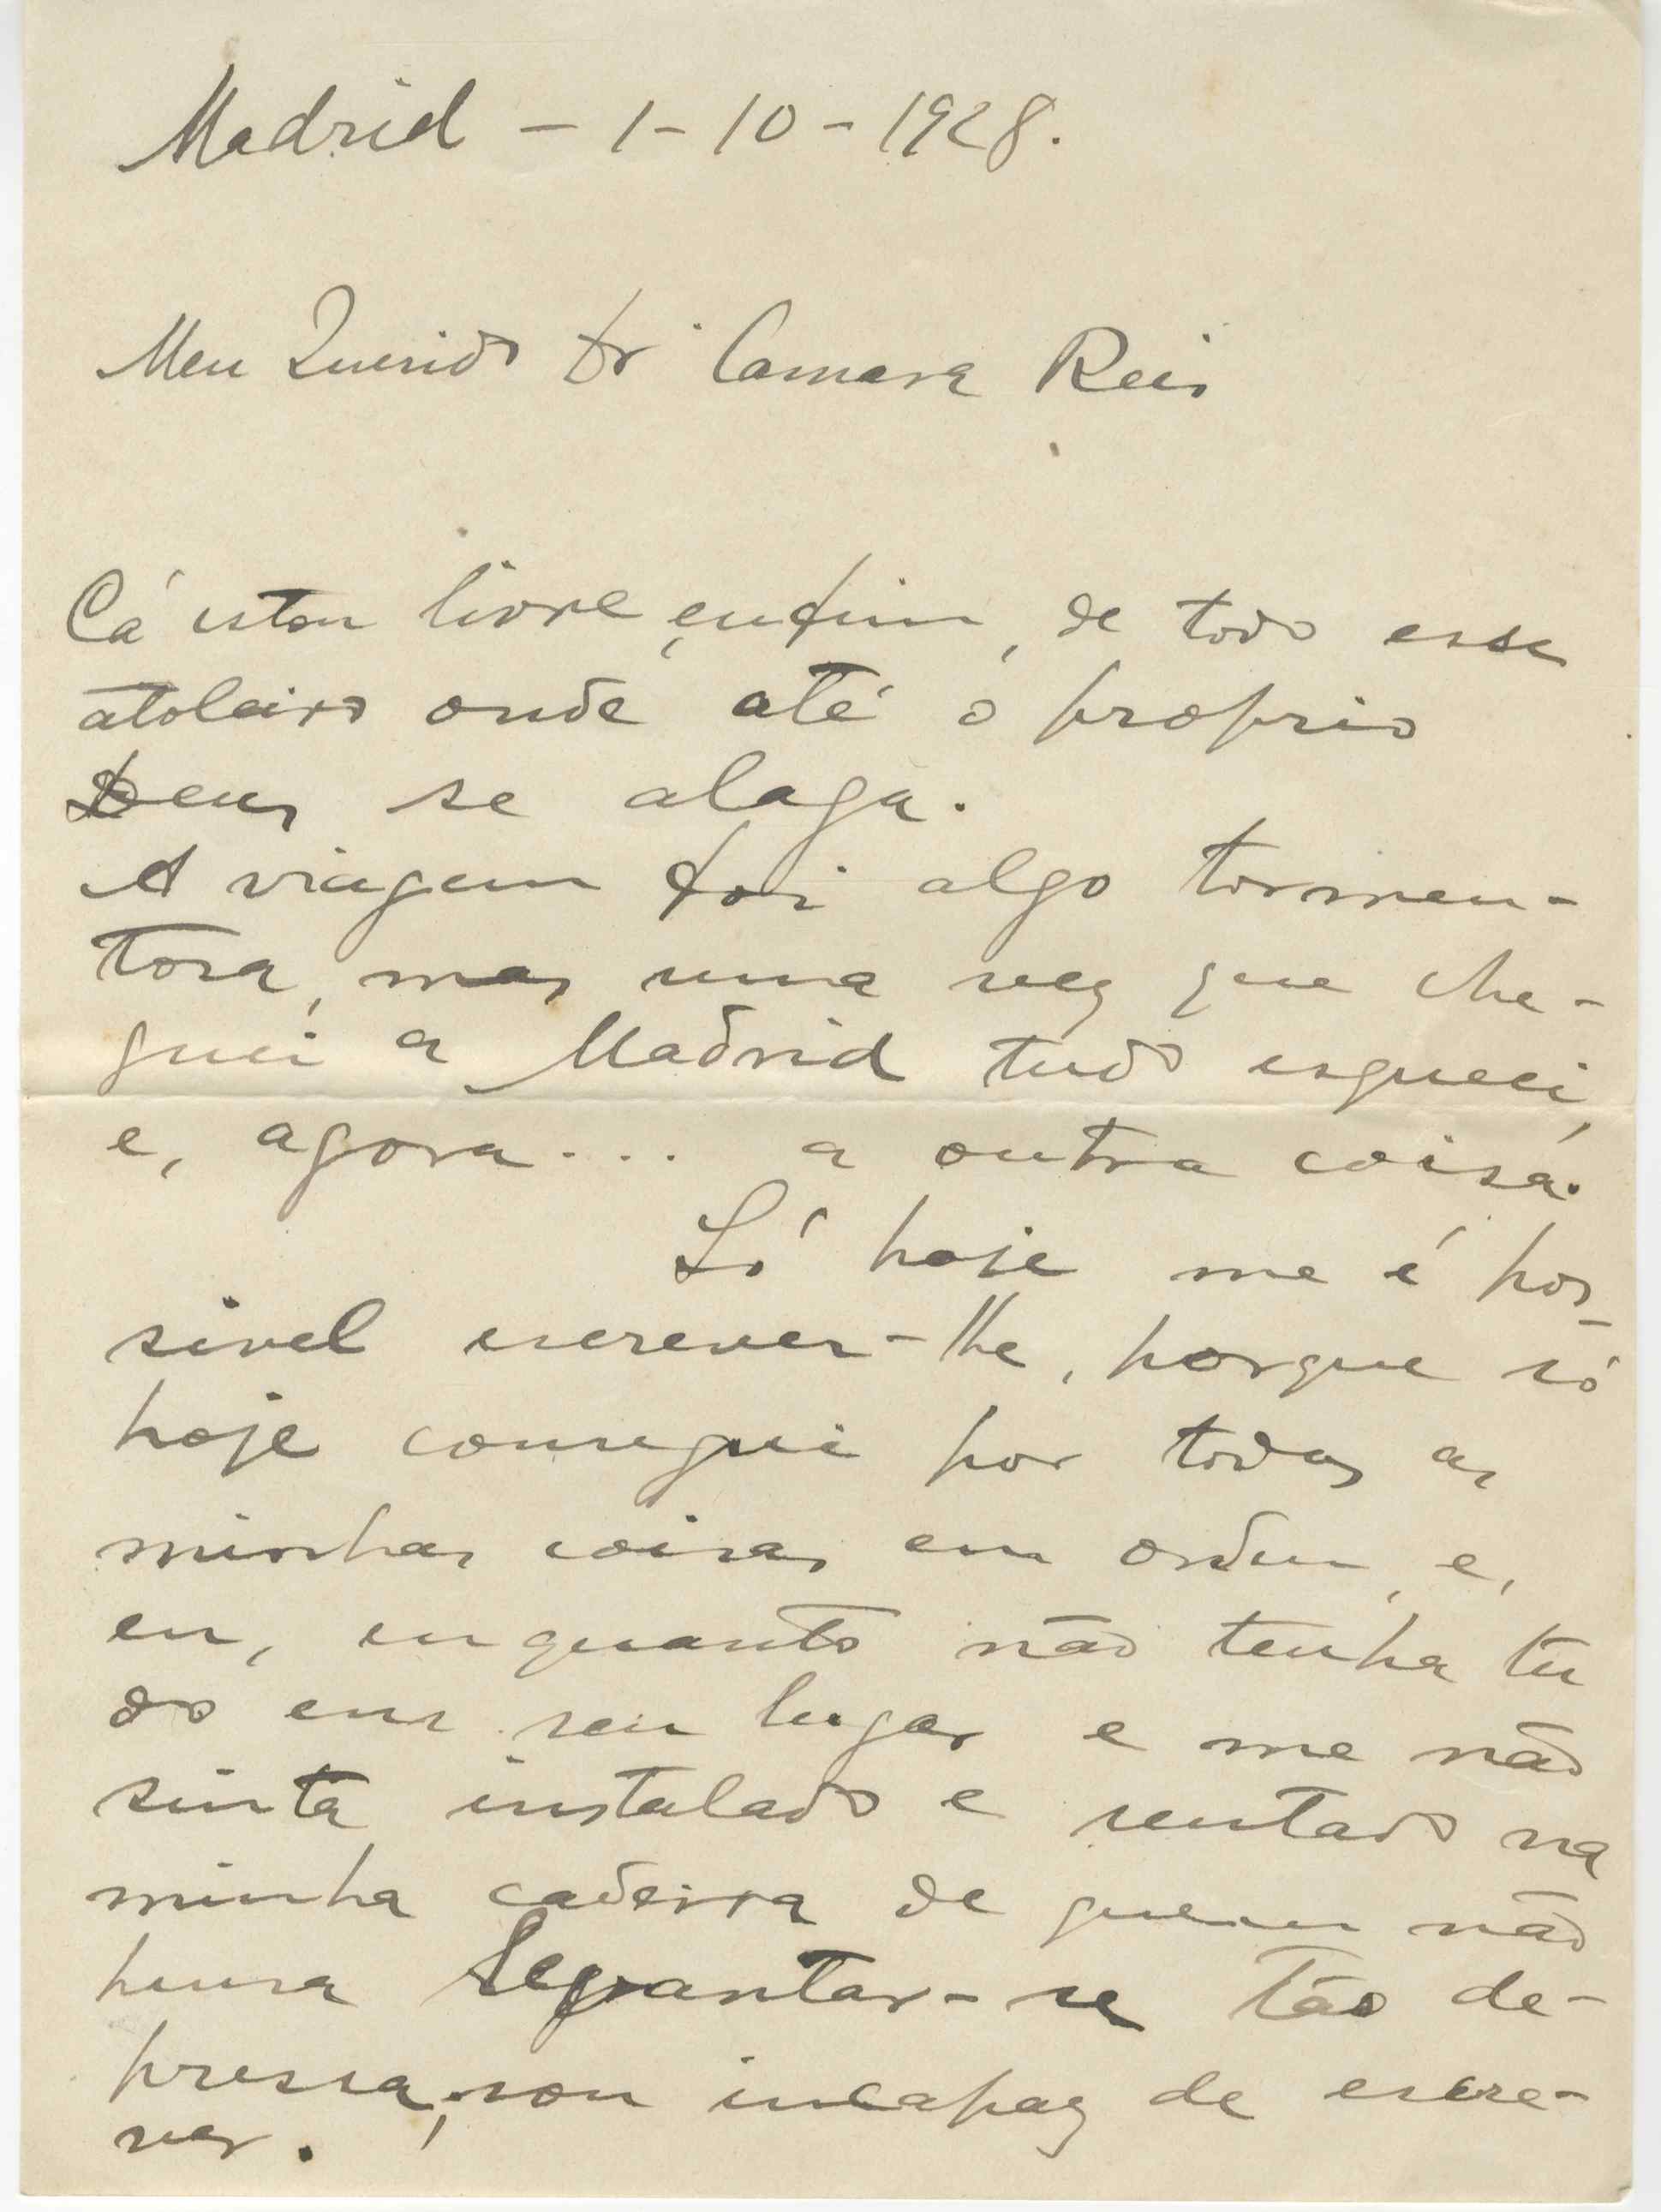 Madrid - 1-10-1928.
Meu Querido Dr. Camara Reis
Cá estou livre, enfim, de todo esse
atoleiro onde até o proprio
Deus se alaga.
A viagem foi algo tormen-
tosa, mas uma vez que che-
guei a Madrid tudo esqueci,
e, agora.... a outra coisa.
Só hoje me é pos-
sivel escrever-lhe, porque só
hoje consegui por todas as
minhas coisas em ordem, e,
eu, enquanto não tenha tu
do em seu lugar e me não
sinta instalado e sentado na
minha cadeira de quem não
pensa levantar-se tão de-
pressa, sou incapaz de escre-
ver.